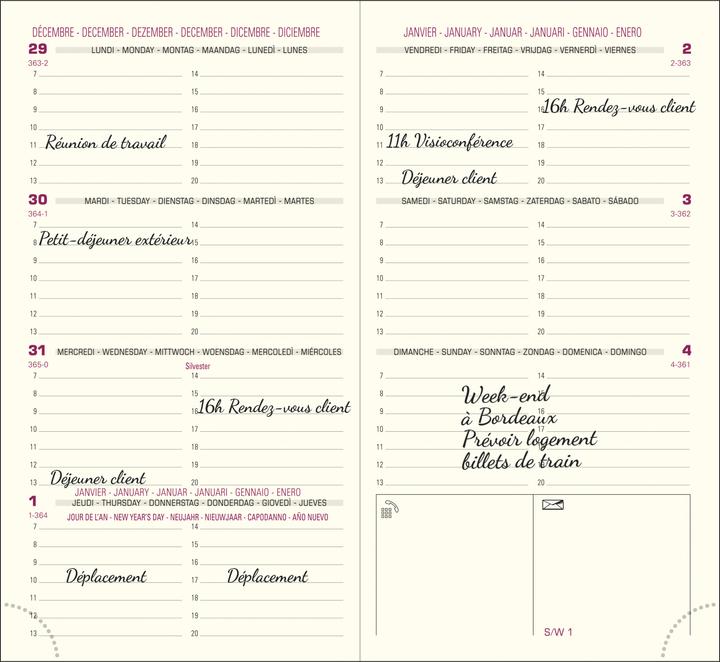 DÉCEMBRE - DECEMBER - DEZEMBER - DECEMBER - DICEMBRE - DICIEMBRE
29 LUNDI - MONDAY - MONTAG - MAANDAG - LUNEDÌ - LUNES
363-2
7 14
8 15
9 16
10 17
11 Réunion de travail 18
12 19
13 20
30 MARDI - TUESDAY - DIENSTAG - DINSDAG - MARTEDÌ - MARTES
364-1
7 14
8 Petit-déjeuner extérieur 15
9 16
10 17
11 18
12 19
13 20
31 MERCREDI - WEDNESDAY - MITTWOCH - WOENSDAG - MERCOLEDÌ - MIÉRCOLES
365-0
Silvester
7 14
8 15
9 16 16h Rendez-vous client
10 17
11 18
12 19
13 Déjeuner client 20
JANVIER - JANUARY - JANUAR - JANUARI - GENNAIO - ENERO
1 JEUDI - THURSDAY - DONNERSTAG - DONDERDAG - GIOVEDÌ - JUEVES
1-364 JOUR DE L'AN - NEW YEAR'S DAY - NEUJAHR - NIEUWJAAR - CAPODANNO - AÑO NUEVO
7 14
8 15
9 16
10 Déplacement 17 Déplacement
11 18
12 19
13 20
JANVIER - JANUARY - JANUAR - JANUARI - GENNAIO - ENERO
VENDREDI - FRIDAY - FREITAG - VRIJDAG - VERNERDÌ - VIERNES 2
2-363
7 14
8 15
9 16 16h Rendez-vous client
10 17
11 11h Visioconférence 18
12 19
13 Déjeuner client 20
SAMEDI - SATURDAY - SAMSTAG - ZATERDAG - SABATO - SÁBADO 3
3-362
7 14
8 15
9 16
10 17
11 18
12 19
13 20
DIMANCHE - SUNDAY - SONNTAG - ZONDAG - DOMENICA - DOMINGO 4
4-361
7 14
8 Week-end 15
9 à Bordeaux 16
10 Prévoir logement 17
11 billets de train 18
12 19
13 20
S/W 1